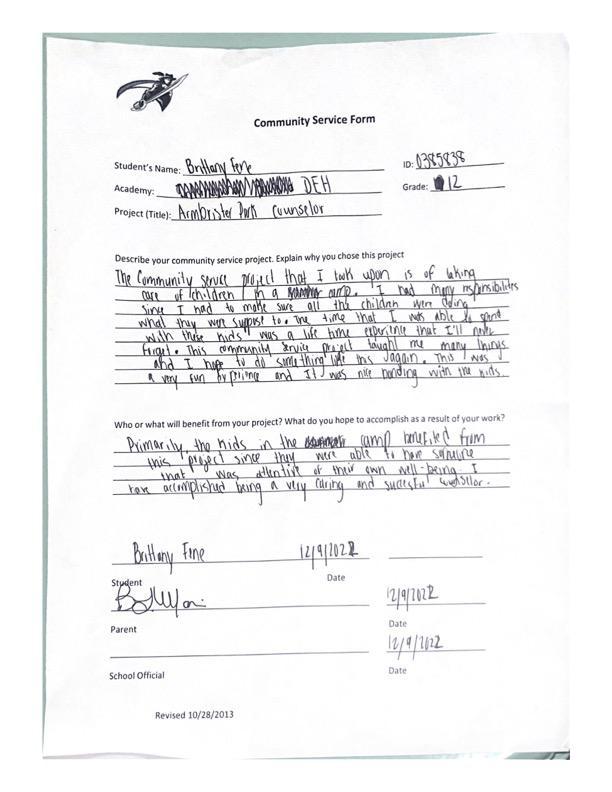 Community Service Form
Student's Name: Brittany Fene ID: 0385838
Academy: DEH Grade: 12
Project (Title): Armbrister Park Counselor
Describe your community service project. Explain why you chose this project
The Community service project that I took upon is of taking
care of children in a camp. I had many responsibilites
since I had to make sure all the children were doing
what they were suppose to. The time that I was able to spend
with these kids was a life time experience that I'll never
forget. This community service project taught me many things
and I hope to do something like this again. This was
a very fun experience and It was nice bonding with the kids.
Who or what will benefit from your project? What do you hope to accomplish as a result of your work?
Primarily, the kids in the camp benefited from
this project since they were able to have someone
that was attentive of their own well-being. I
have accomplished being a very caring and succesful counselor.
Brittany Fene 12/9/2022
Student Date
12/9/2022
Parent Date
12/9/2022
School Official Date
Revised 10/28/2013